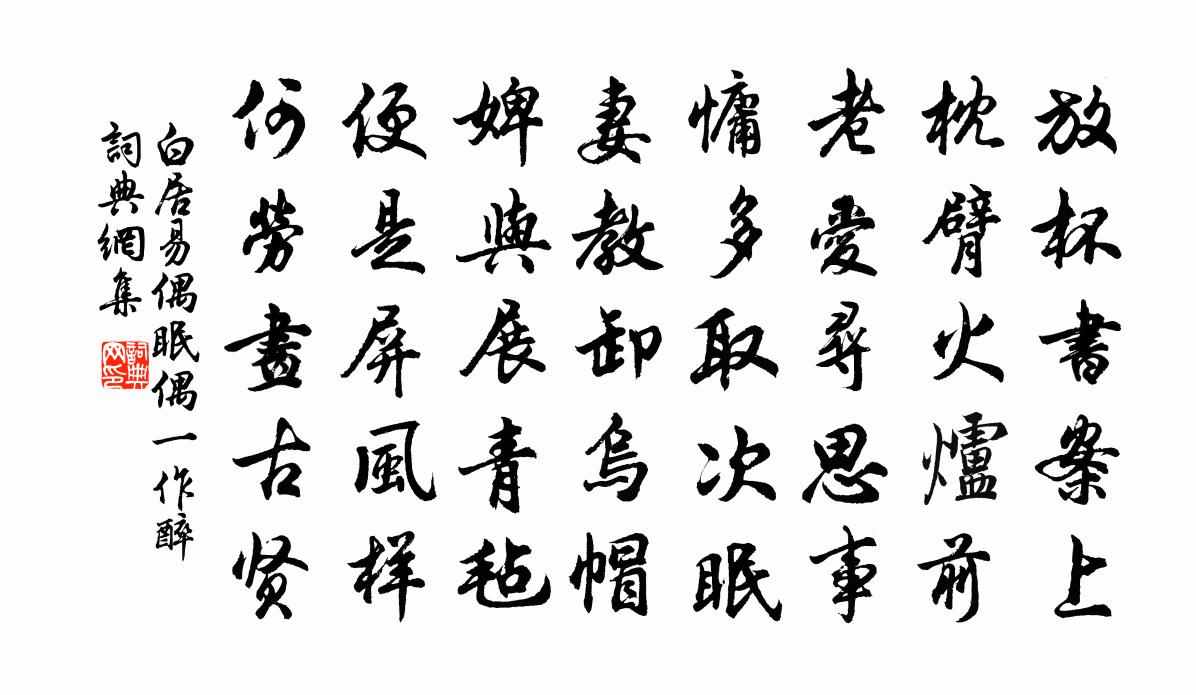 放杯書案上
枕臂火爐前
老愛尋思事
慵多取次眠
妻教卸烏帽
婢與展青毡
便是屏風样
何勞畫古贤
白居易偶眠偶一作醉
詞典網集
詞典
网印